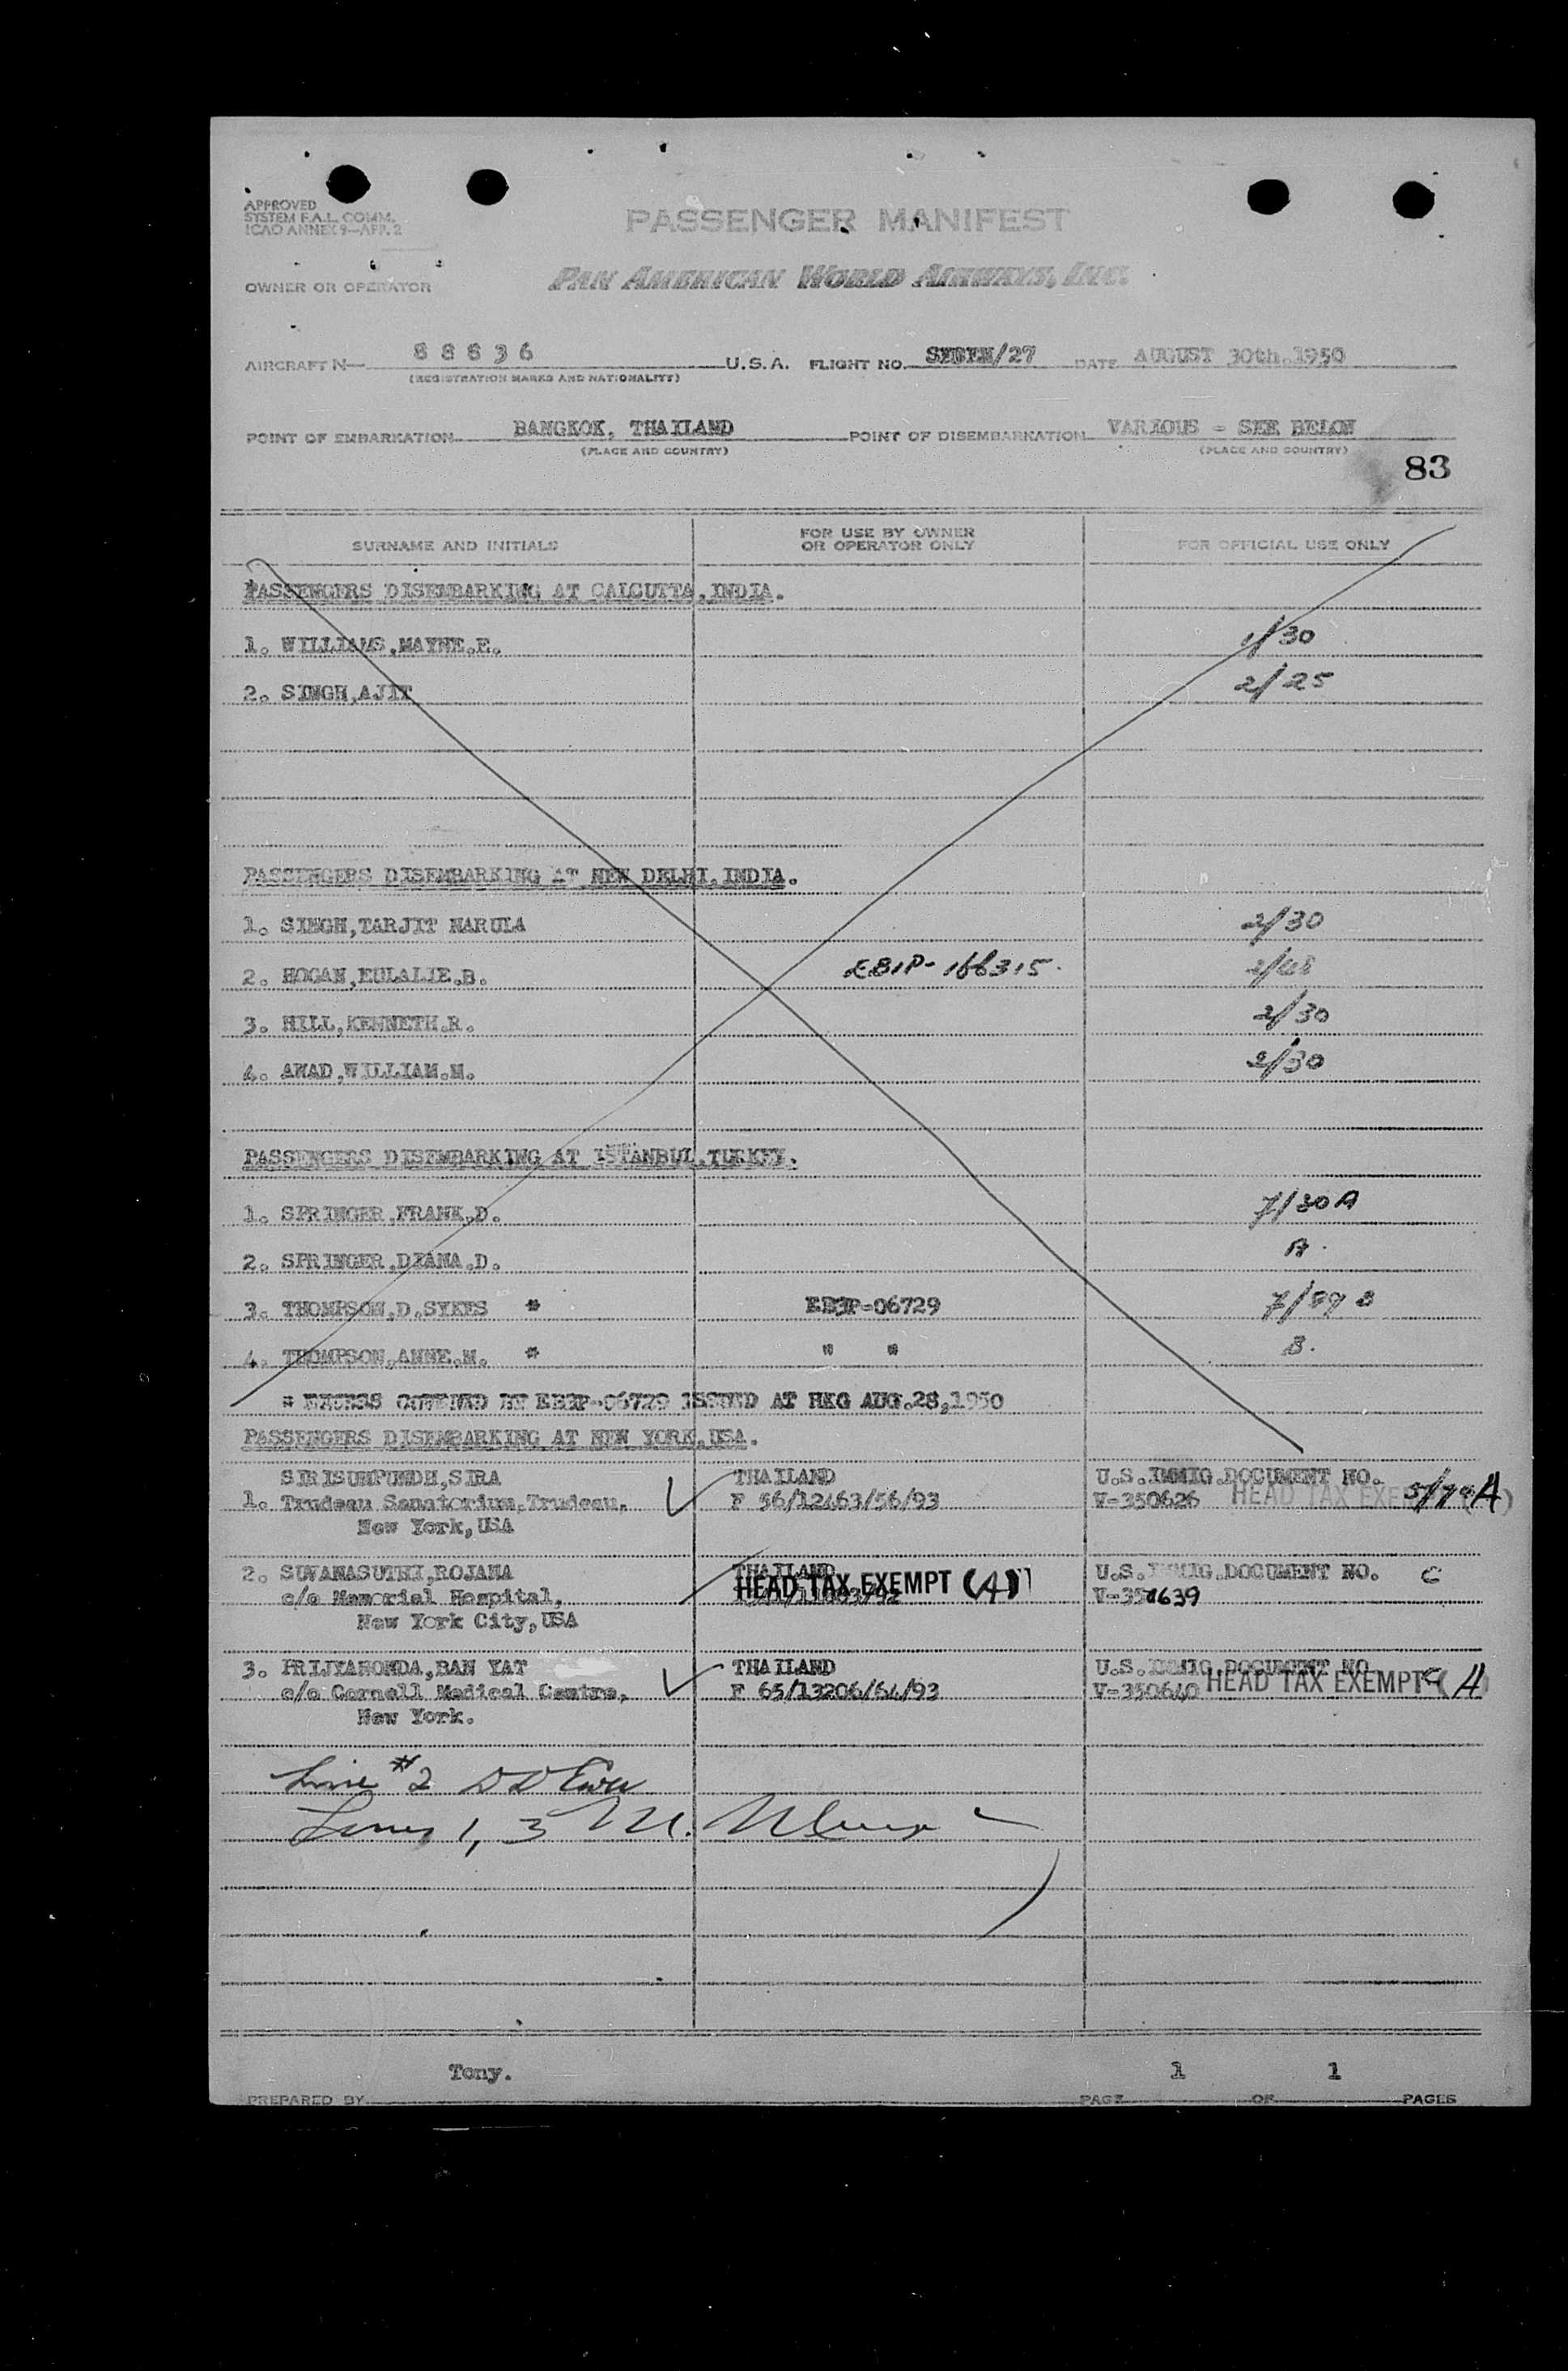 APPROVED
SYSTEM F.A.L. COMM.
ICAO ANNEX 9—APP. 2
PASSENGER MANIFEST
OWNER OR OPERATOR
PAN AMERICAN WORLD AIRWAYS, INC.
AIRCRAFT N— 88836 U.S.A. FLIGHT NO. DATE AUGUST 30th.1950
(REGISTRATION MARKS AND NATIONALITY)
POINT OF EMBARKATION BANGKOK, THAILAND POINT OF DISEMBARKATION VARIOUS - SEE BELOW
(PLACE AND COUNTRY) (PLACE AND COUNTRY)
83
SURNAME AND INITIALS FOR USE BY OWNER OR OPERATOR ONLY FOR OFFICIAL USE ONLY
PASSENGERS DISEMBARKING AT CALCUTTA,INDIA.
1. WILLIAMS,MAYNE.E. 1/30
2. SINGH,AJIT 2/25
PASSENGERS DISEMBARKING AT NEW DELHI,INDIA.
1. SINGH,TARJIT NARULA 2/30
2. HOGAN,EULALIE.B. EB1P-166315. 2/48
3. HILL,KENNETH.R. 2/30
4. AWAD,WILLIAM.M. 2/30
PASSENGERS DISEMBARKING AT ISTANBUL,TURKEY.
1. SPRINGER,FRANK.D. 7/30 A
2. SPRINGER,DIANA.D. A.
3. THOMPSON,D.SYKES * EB3P-06729 7/89 B
4. THOMPSON,ANNE.M. * " " B.
* EXCESS COVERED BY EB3P-06729 ISSUED AT HKG AUG.28,1950
PASSENGERS DISEMBARKING AT NEW YORK,USA.
SIRISUMPUNDH,SIRA THAILAND U.S.IMMIG.DOCUMENT NO.
1. Trudeau Sanatorium,Trudeau, F 56/12463/56/93 V-350626 HEAD TAX EXEMPT (A)
New York,USA
2. SUVANASUTHI,ROJANA THAILAND U.S.IMMIG.DOCUMENT NO. C
c/o Memorial Hospital, HEAD TAX EXEMPT (A) V-350639
New York City,USA
3. PRIJYANONDA,BAN YAT THAILAND U.S.IMMIG.DOCUMENT NO
c/o Cornell Medical Centre, F 65/13206/64/93 V-350640 HEAD TAX EXEMPT (A)
New York.
Line #2
Lines 1, 3 M.
Tony. 1 1
PREPARED BY PAGE OF PAGES